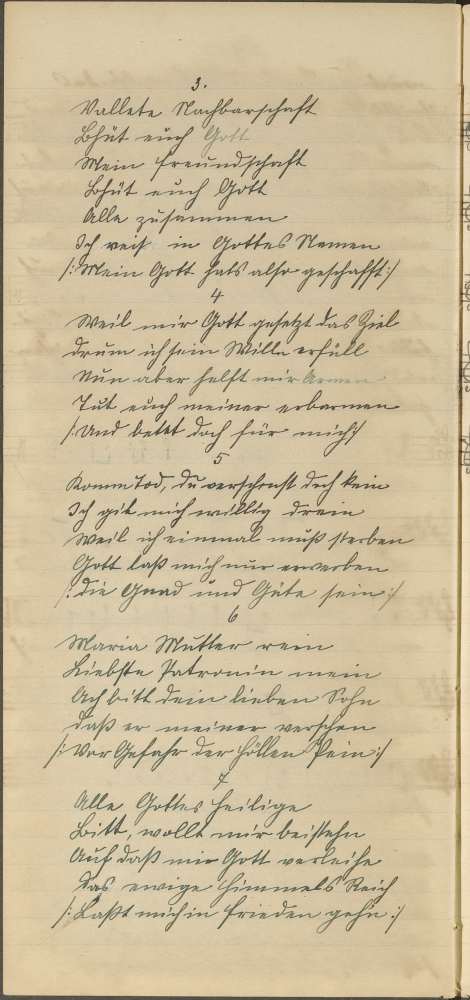 3.
Vallete Nachbarschaft
Bhüt euch Gott
Mein Freundschaft
Bhüt euch Gott
Alle zusammen
Ich reis in Gottes Namen
/: Mein Gott hats also geschafft :/
4
Weil mir Gott gesetzt das Ziel
drum ich sein Willn erfüll
Nun aber helft mir Armen
Tut euch meiner erbarmen
/: Und betet doch für mich :/
5
Komm Tod, du verschonst doch kein
Ich gib mich willig drein
Weil ich einmal muß sterben
Gott laß mich nur erwerben
/: die Gnad und Güte sein :/
6
Maria Mutter rein
Liebste Patronin mein
Ach bitt dein lieben Sohn
daß er meiner verschon
/: Vor Gefahr der Höllen Pein :/
7
Alle Gottes Heilige
Bitt, wollt mir beistehn
Auf daß mir Gott verleihe
das ewige Himmels Reich
/: Laßt mich in Frieden gehn :/